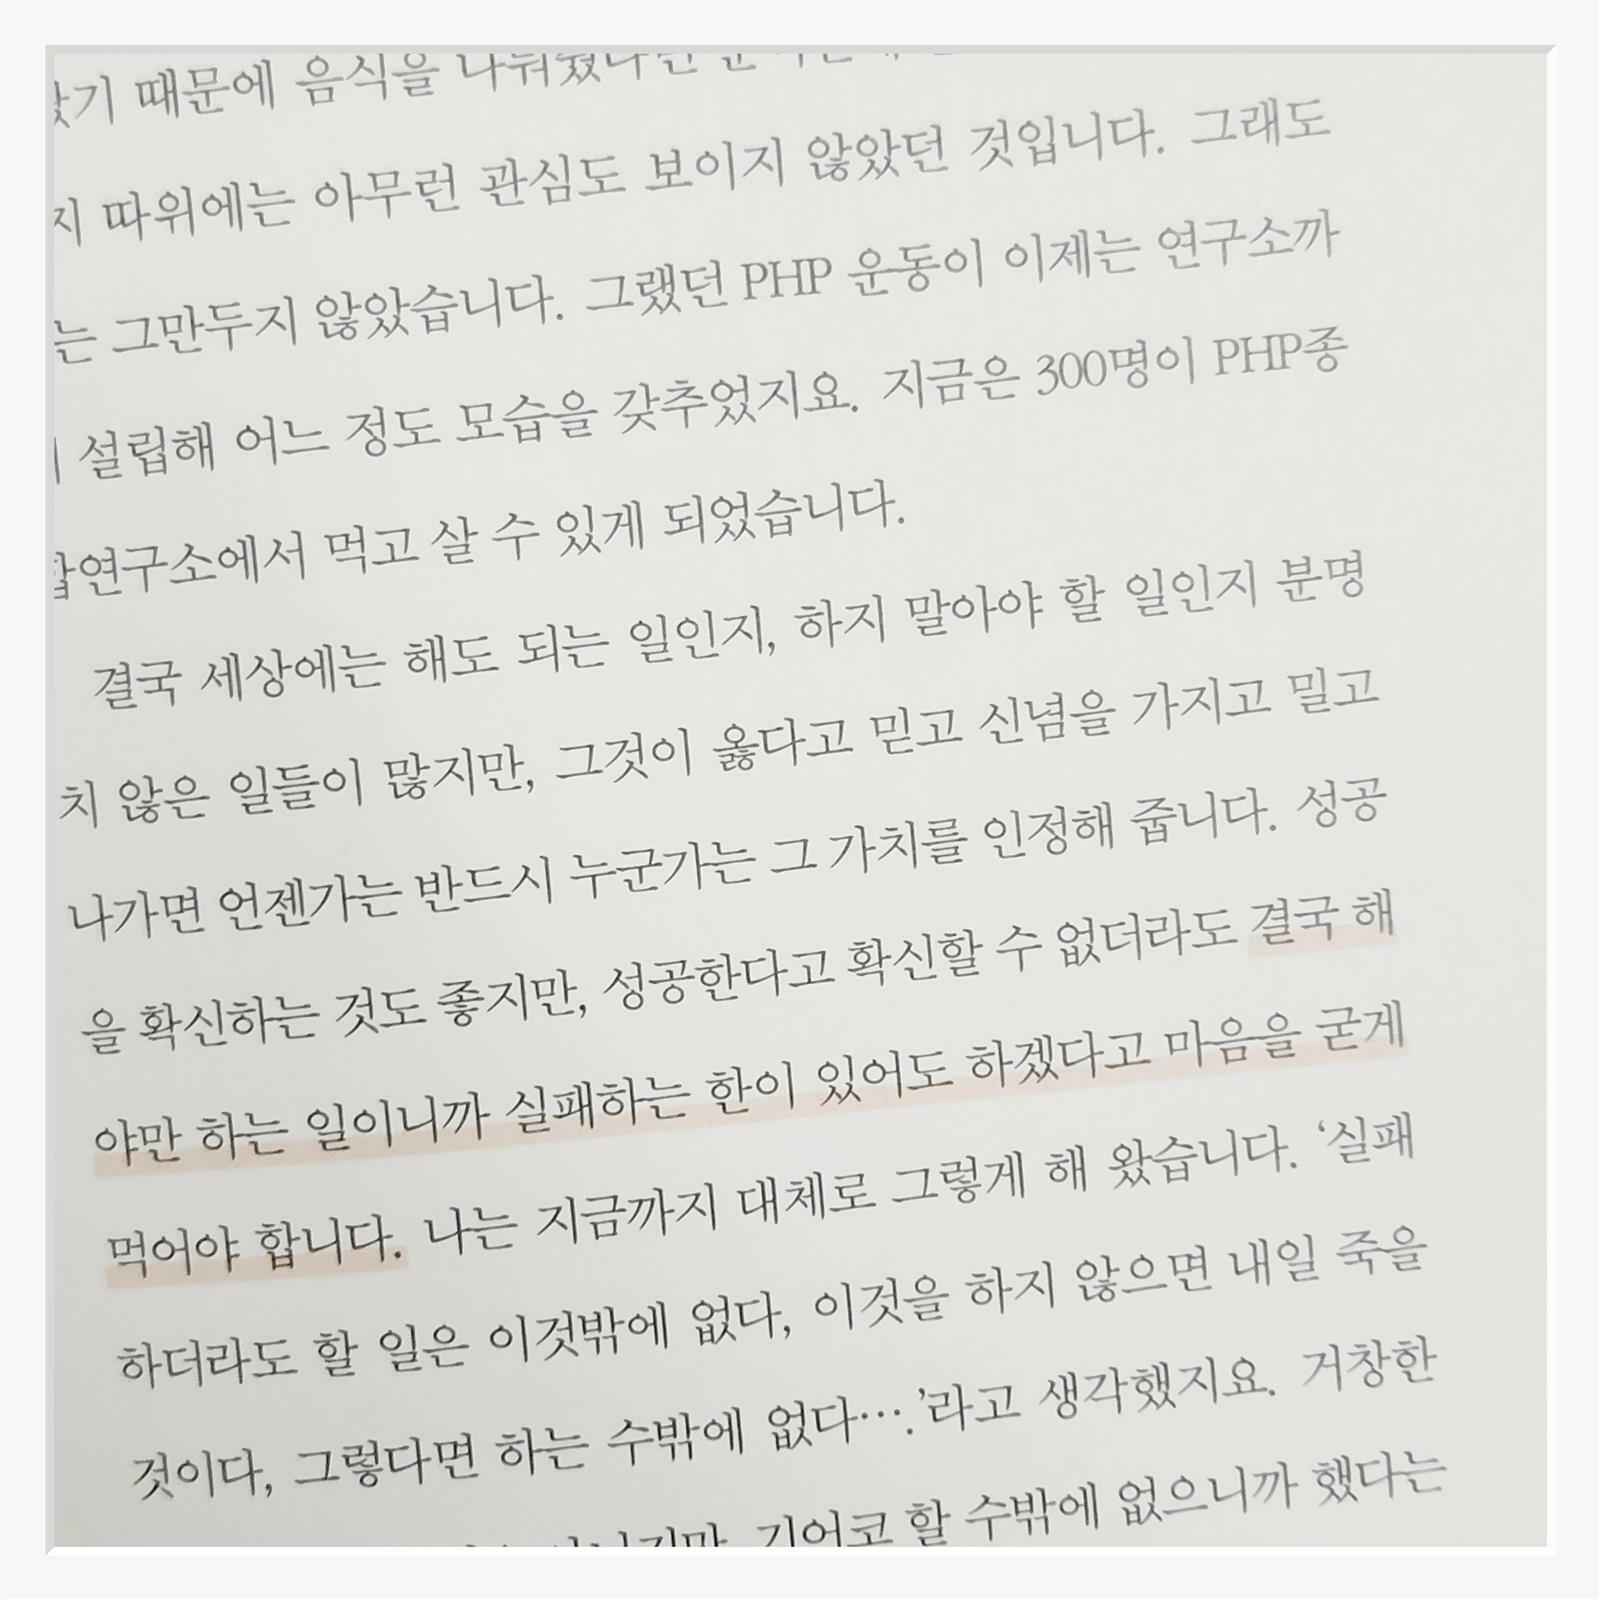 때문에 음식을
지 따위에는 아무런 관심도 보이지 않았던 것입니다. 그래도
는 그만두지 않았습니다. 그랬던 PHP 운동이 이제는 연구소까
설립해 어느 정도 모습을 갖추었지요. 지금은 300명이 PHP종
합연구소에서 먹고 살 수 있게 되었습니다.
결국 세상에는 해도 되는 일인지, 하지 말아야 할 일인지 분명
치 않은 일들이 많지만, 그것이 옳다고 믿고 신념을 가지고 밀고
나가면 언젠가는 반드시 누군가는 그 가치를 인정해 줍니다. 성공
을 확신하는 것도 좋지만, 성공한다고 확신할 수 없더라도 결국 해
야만 하는 일이니까 실패하는 한이 있어도 하겠다고 마음을 굳게
먹어야 합니다. 나는 지금까지 대체로 그렇게 해 왔습니다. ‘실패
하더라도 할 일은 이것밖에 없다, 이것을 하지 않으면 내일 죽을
것이다, 그렇다면 하는 수밖에 없다….’라고 생각했지요. 거창한
기어코 할 수밖에 없으니까 했다는